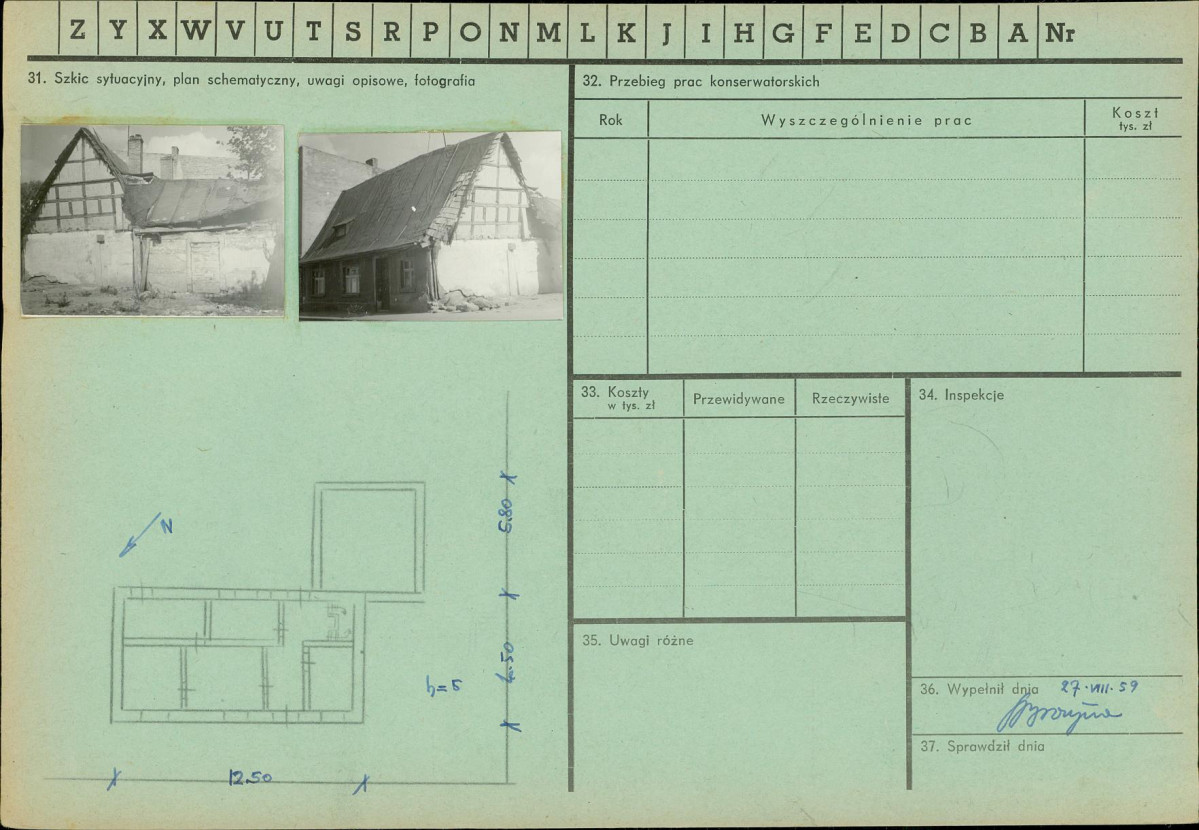 Z Y X W V U T S R P O N M L K J I H G F E D C B A Nr
31. Szkic sytuacyjny, plan schematyczny, uwagi opisowe, fotografia
N
5.80
h=5
12.50
32. Przebieg prac konserwatorskich
Rok Wyszczególnienie prac Koszt
tys. zł
33. Koszty Przewidywane Rzeczywiste
w tys. zł
34. Inspekcje
35. Uwagi różne
36. Wypełnił dnia 27·VIII·59
37. Sprawdził dnia